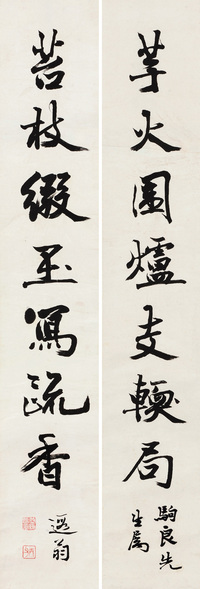 芋火圍爐支轉局
駒良先
生屬
苔枝綴玉寫疏香
遐翁